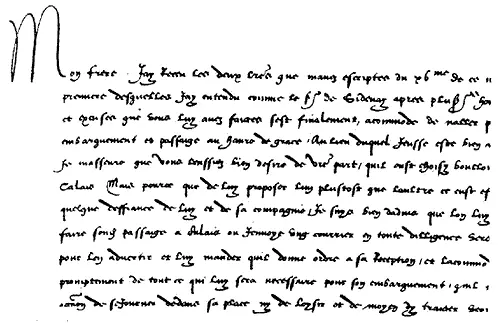 Mon frere Jay Receu les deux lres que mavez escriptes du xbme de ce m
premiere desquelles Jay entendu comme le sr de Sidenay apres plus
et excuses que vous luy avez faictes sest finalement, acomode de naller p
embarquement et passage au havre de grace, Au lieu duquel Jeusse este bien a
Je masseure que vous leussiez bien desire de vre part, quil eust choisy boullon
Calais Mais pource que de luy proposer luy plustost que laultre ce eust es
quelque deffiance de luy et de sa compagnie, Je suys bien dadvis que lon luy
faire son passage a Calais ou Jenvoye ung courrier en toute dilligence vers
pour len advertir et luy mander quil donne ordre a sa Reception, et lacomm
promptement de tout ce qui luy sera necessaire pour son embarquement, quil
de sejourner dedans sa place ny de loysir et de moyen dy traicter